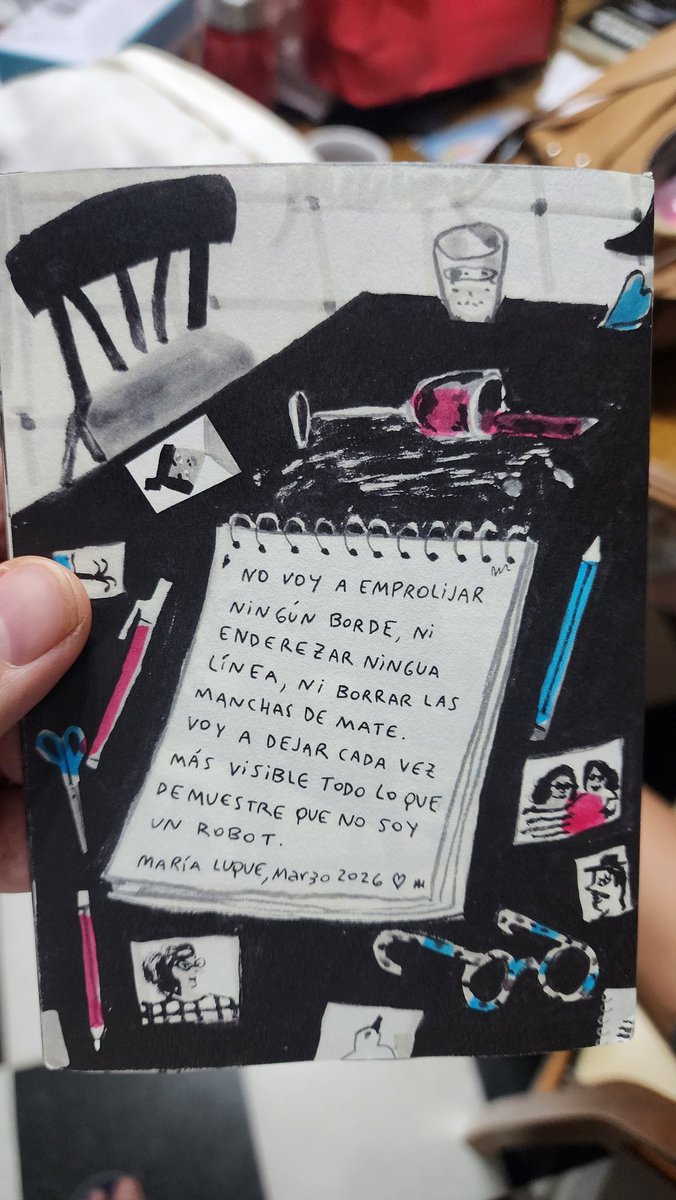 NO VOY A EMPROLIJAR
NINGÚN BORDE, NI
ENDEREZAR NINGUA
LÍNEA, NI BORRAR LAS
MANCHAS DE MATE.
VOY A DEJAR CADA VEZ
MÁS VISIBLE TODO LO QUE
DEMUESTRE QUE NO SOY
UN ROBOT.
MARÍA LUQUE, Marzo 2026 ♡